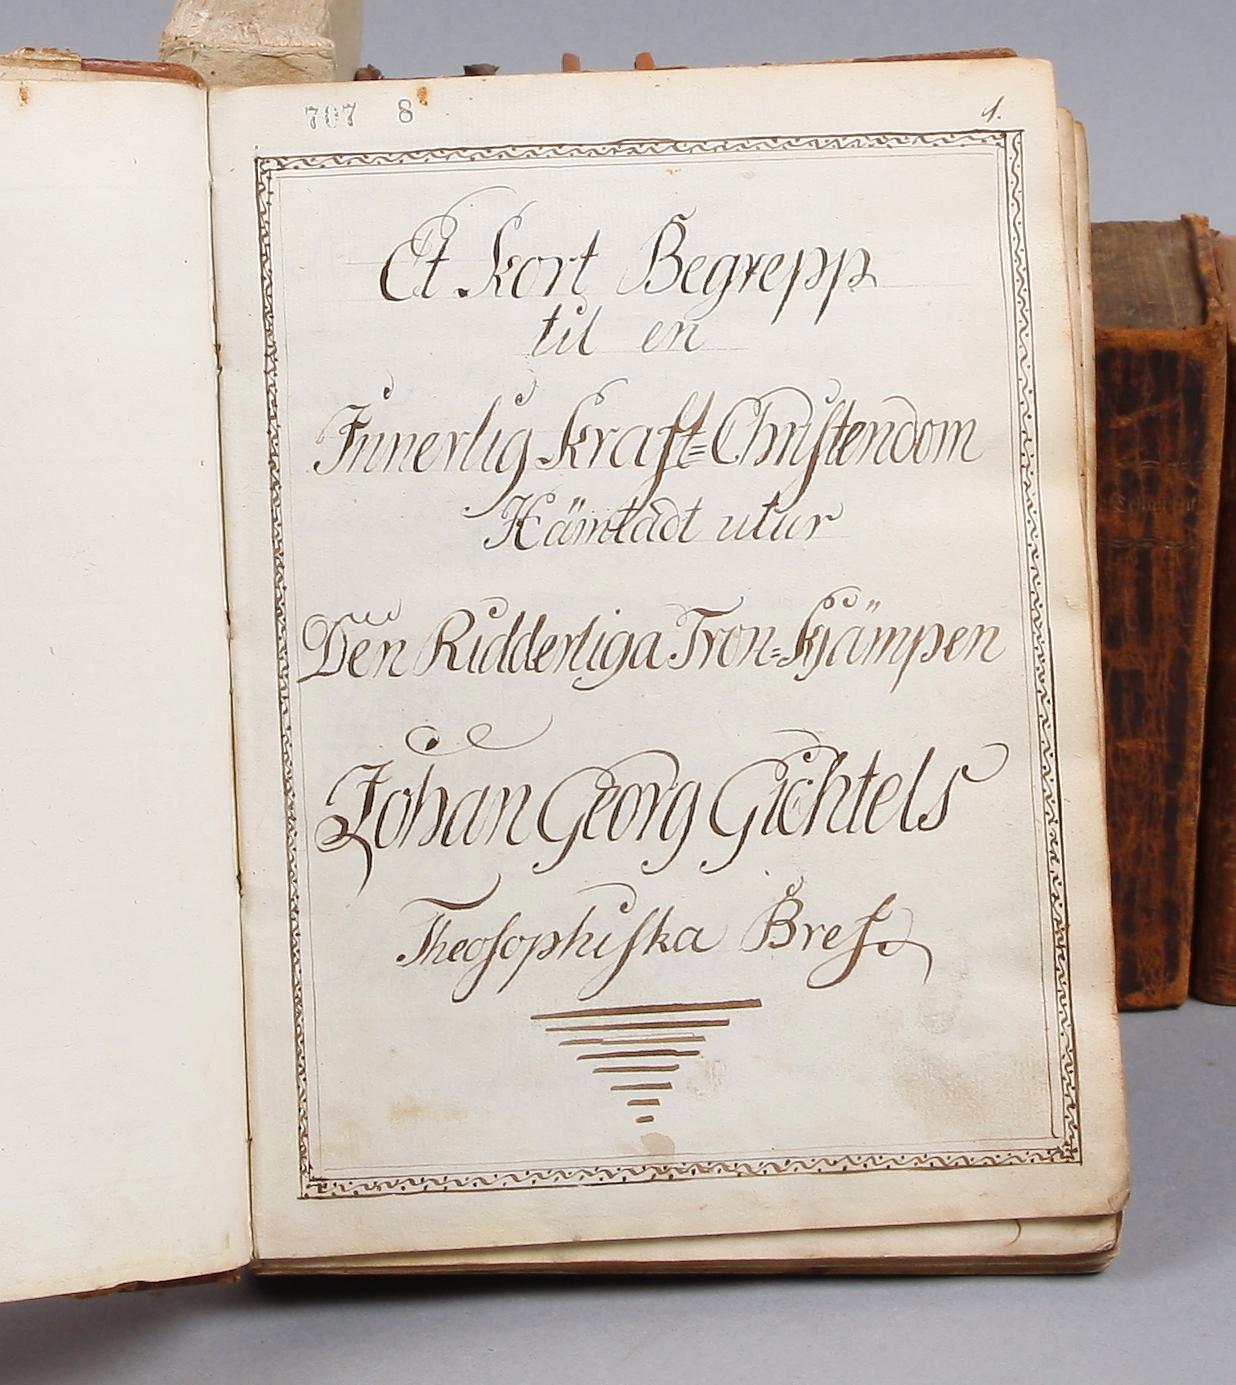 707 8
1.
Et kort Begrepp
til en
Innerlig kraft=Christendom
Hämtadt utur
Den Ridderliga Tron=Kjämpen
Johan Georg Gichtels
Theosophiska Bref.